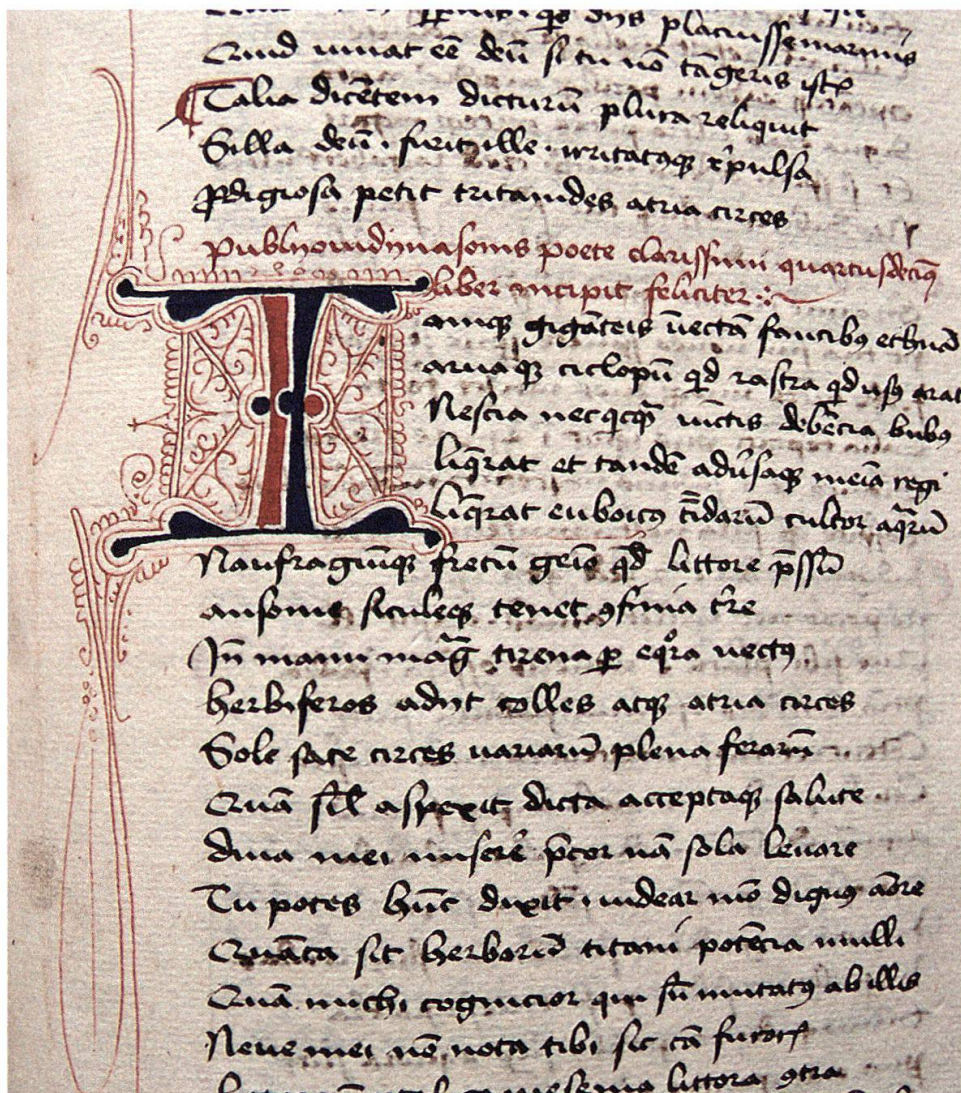 placuisse marinis
Quid iuuat eē deū si tu nō tāgeris istꝭ
Talia dicētem dicturū plura reliquit
Silla deū · furit ille · irritatꝰqꝫ r̄pulsa
ꝓdigiosa petit titanides atria circes
Publij ouidij nasonis poete clarissimi quartusdecimꝰ
liber incipit feliciter
amqꝫ gigāteis īiectā faucibꝰ ethnā
aruaqꝫ ciclopū qd rastra qd usꝰ arat
Nescia nec qcqꝫ iūctis debētia bubꝰ
liq̄rat et tandē aduˀsaqꝫ meīa regi
liq̄rat euboicꝰ tēidarū cultor aq̄rū
Naufragiūqꝫ fretū geīo qd littore p̄ssū
ausonie siculeqꝫ tenet ꝯfinia tˀre
In manu maḡ tirena ꝑ eqͦra uectꝰ
herbiferos adijt colles atqꝫ atria circes
Sole sate circes uariarū plena ferarū
Quā sīl aspexit dicta acceptaqꝫ salute
diua mei miserˀe p̄cor nā sola leuare
Tu potes hūc dixit uidear mō dignꝰ aōre
Quāta sit herbarū titani potētia nulli
Quā michi cognicior qui sū mutatꝰ ab illis
Neue mei nō nota tibi sit cā furorꝭ
littora ꝯtra